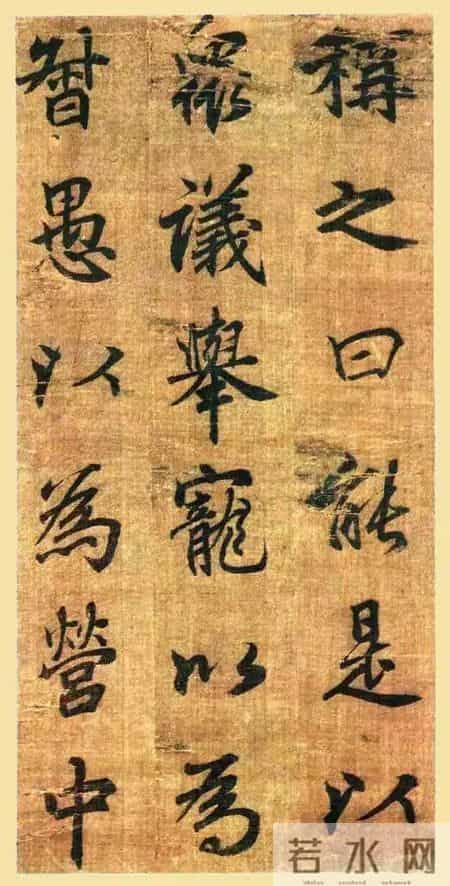 稱之曰能是以
眾議舉寵以為
督愚以為營中
若水网